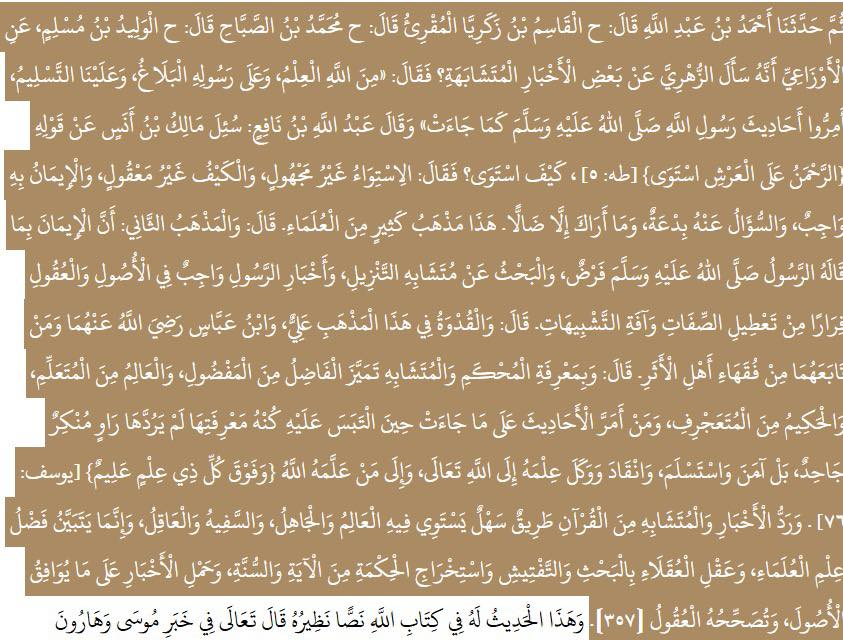 ثُمَّ حَدَّثَنَا أَحْمَدُ بْنُ عَبْدِ اللَّهِ قَالَ: ح الْقَاسِمُ بْنُ زَكَرِيَّا الْمُقْرِئُ قَالَ: ح مُحَمَّدُ بْنُ الصَّبَّاحِ قَالَ: ح الْوَلِيدُ بْنُ مُسْلِمٍ، عَنِ
الْأَوْزَاعِيِّ أَنَّهُ سَأَلَ الزُّهْرِيَّ عَنْ بَعْضِ الْأَخْبَارِ الْمُتَشَابَهَةِ؟ فَقَالَ: «مِنَ اللَّهِ الْعِلْمُ، وَعَلَى رَسُولِهِ الْبَلَاغُ، وَعَلَيْنَا التَّسْلِيمُ،
أَمِرُّوا أَحَادِيثَ رَسُولِ اللَّهِ صَلَّى اللهُ عَلَيْهِ وَسَلَّمَ كَمَا جَاءَتْ» وَقَالَ عَبْدُ اللَّهِ بْنُ نَافِعٍ: سُئِلَ مَالِكُ بْنُ أَنَسٍ عَنْ قَوْلِهِ
{الرَّحْمَنُ عَلَى الْعَرْشِ اسْتَوَى} [طه: ٥] ، كَيْفَ اسْتَوَى؟ فَقَالَ: الِاسْتِوَاءُ غَيْرُ مَجْهُولٍ، وَالْكَيْفُ غَيْرُ مَعْقُولٍ، وَالْإِيمَانُ بِهِ
وَاجِبٌ، وَالسُّؤَالُ عَنْهُ بِدْعَةٌ، وَمَا أَرَاكَ إِلَّا ضَالًّا. هَذَا مَذْهَبُ كَثِيرٍ مِنَ الْعُلَمَاءِ. قَالَ: وَالْمَذْهَبُ الثَّانِي: أَنَّ الْإِيمَانَ بِمَا
قَالَهُ الرَّسُولُ صَلَّى اللهُ عَلَيْهِ وَسَلَّمَ فَرْضٌ، وَالْبَحْثُ عَنْ مُتَشَابِهِ التَّنْزِيلِ، وَأَخْبَارِ الرَّسُولِ وَاجِبٌ فِي الْأُصُولِ وَالْعُقُولِ
فِرَارًا مِنْ تَعْطِيلِ الصِّفَاتِ وَآفَةِ التَّشْبِيهَاتِ. قَالَ: وَالْقُدْوَةُ فِي هَذَا الْمَذْهَبِ عَلِيٌّ، وَابْنُ عَبَّاسٍ رَضِيَ اللَّهُ عَنْهُمَا وَمَنْ
تَابَعَهُمَا مِنْ فُقَهَاءِ أَهْلِ الْأَثَرِ. قَالَ: وَبِمَعْرِفَةِ الْمُحْكَمِ وَالْمُتَشَابِهِ تَمَيَّزَ الْفَاضِلُ مِنَ الْمَفْضُولِ، وَالْعَالِمُ مِنَ الْمُتَعَلِّمِ،
وَالْحَكِيمُ مِنَ الْمُتَعَجْرِفِ، وَمَنْ أَمَرَّ الْأَحَادِيثَ عَلَى مَا جَاءَتْ حِينَ الْتَبَسَ عَلَيْهِ كُنْهُ مَعْرِفَتِهَا لَمْ يَرُدَّهَا رَاوٍ مُنْكِرٌ
جَاحِدٌ، بَلْ آمَنَ وَاسْتَسْلَمَ، وَانْقَادَ وَوَكَلَ عِلْمَهُ إِلَى اللَّهِ تَعَالَى، وَإِلَى مَنْ عَلَّمَهُ اللَّهُ {وَفَوْقَ كُلِّ ذِي عِلْمٍ عَلِيمٌ} [يوسف:
٧٦] . وَرَدُّ الْأَخْبَارِ وَالْمُتَشَابِهِ مِنَ الْقُرْآنِ طَرِيقٌ سَهْلٌ يَسْتَوِي فِيهِ الْعَالِمُ وَالْجَاهِلُ، وَالسَّفِيهُ وَالْعَاقِلُ، وَإِنَّمَا يَتَبَيَّنُ فَضْلُ
عِلْمِ الْعُلَمَاءِ، وَعَقْلِ الْعُقَلَاءِ بِالْبَحْثِ وَالتَّفْتِيشِ وَاسْتِخْرَاجِ الْحِكْمَةِ مِنَ الْآيَةِ وَالسُّنَّةِ، وَحَمْلِ الْأَخْبَارِ عَلَى مَا يُوَافِقُ
الْأُصُولَ، وَتُصَحِّحُهُ الْعُقُولُ [٣٥٧]. وَهَذَا الْحَدِيثُ لَهُ فِي كِتَابِ اللَّهِ نَصًّا نَظِيرُهُ قَالَ تَعَالَى فِي خَبَرِ مُوسَى وَهَارُونَ